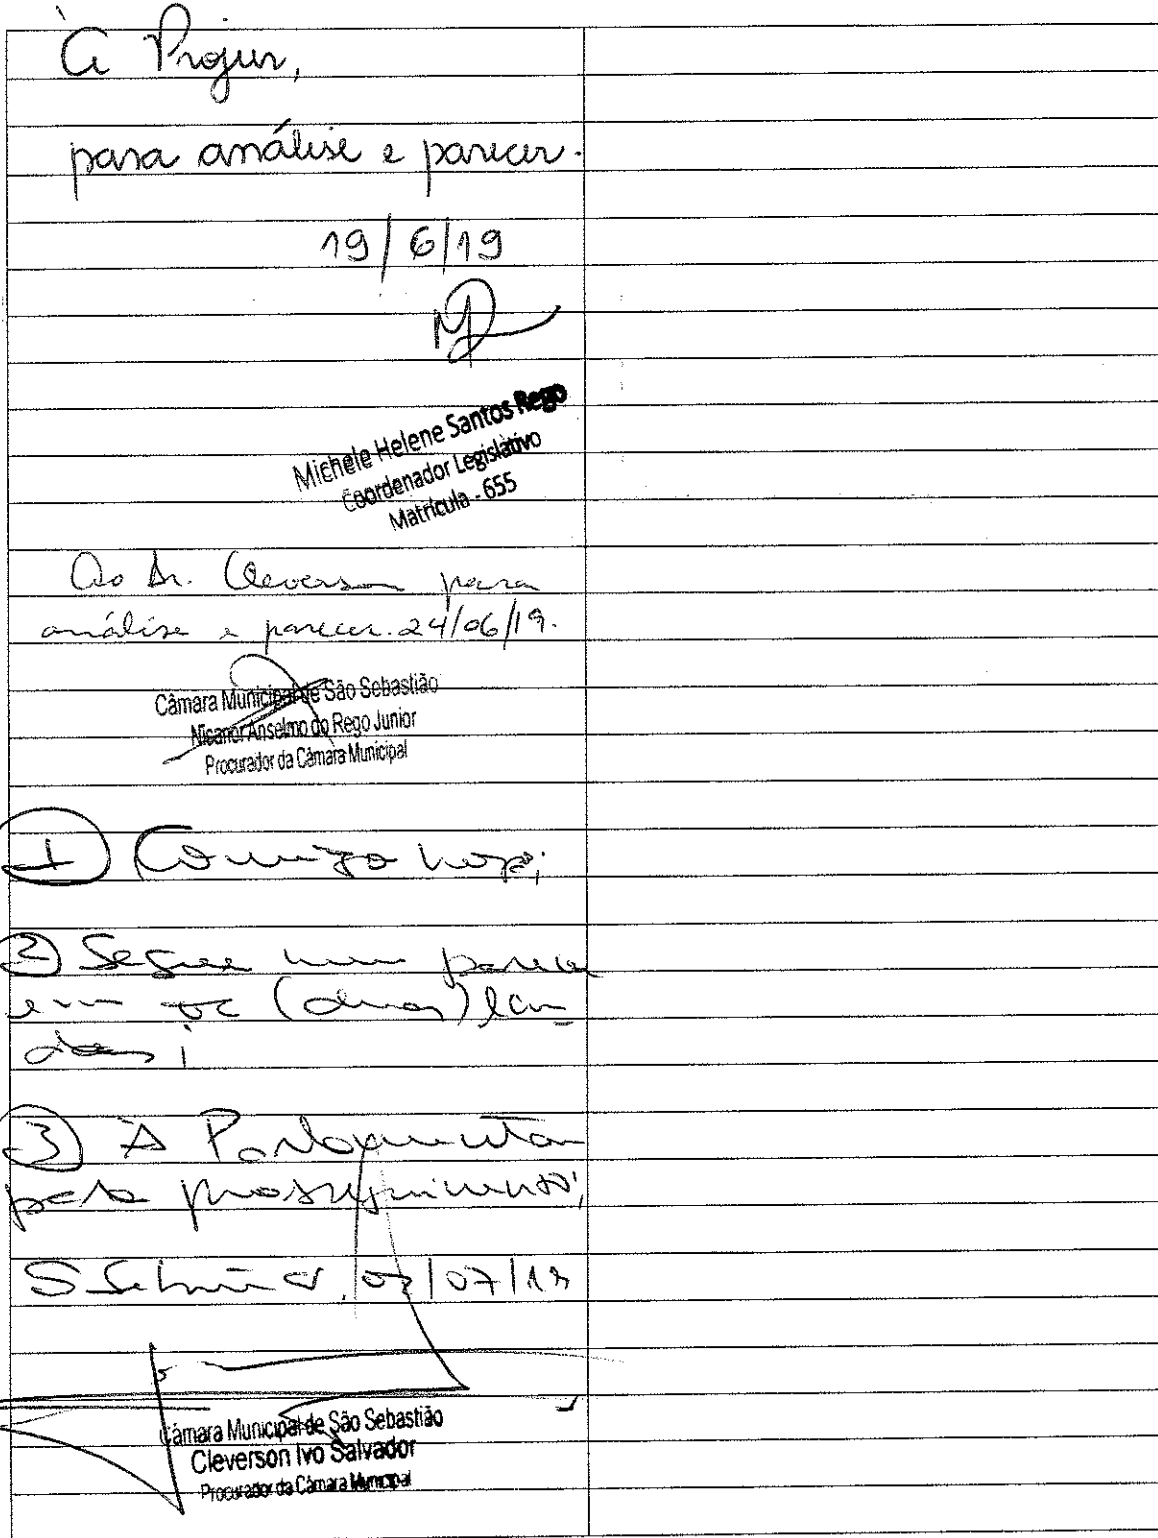 À Projur,
para análise e parecer.
19/6/19
Michele Helene Santos Rego
Coordenador Legislativo
Matrícula - 655
Ao Dr. Cleverson para
análise e parecer. 24/06/19.
Câmara Municipal de São Sebastião
Nicanor Anselmo do Rego Junior
Procurador da Câmara Municipal
1) Comigo hoje;
2) Segue meu parecer
em 02 (duas) lau
das;
3) À Parlamentar
para prosseguimento;
/07/19
Câmara Municipal de São Sebastião
Cleverson Ivo Salvador
Procurador da Câmara Municipal